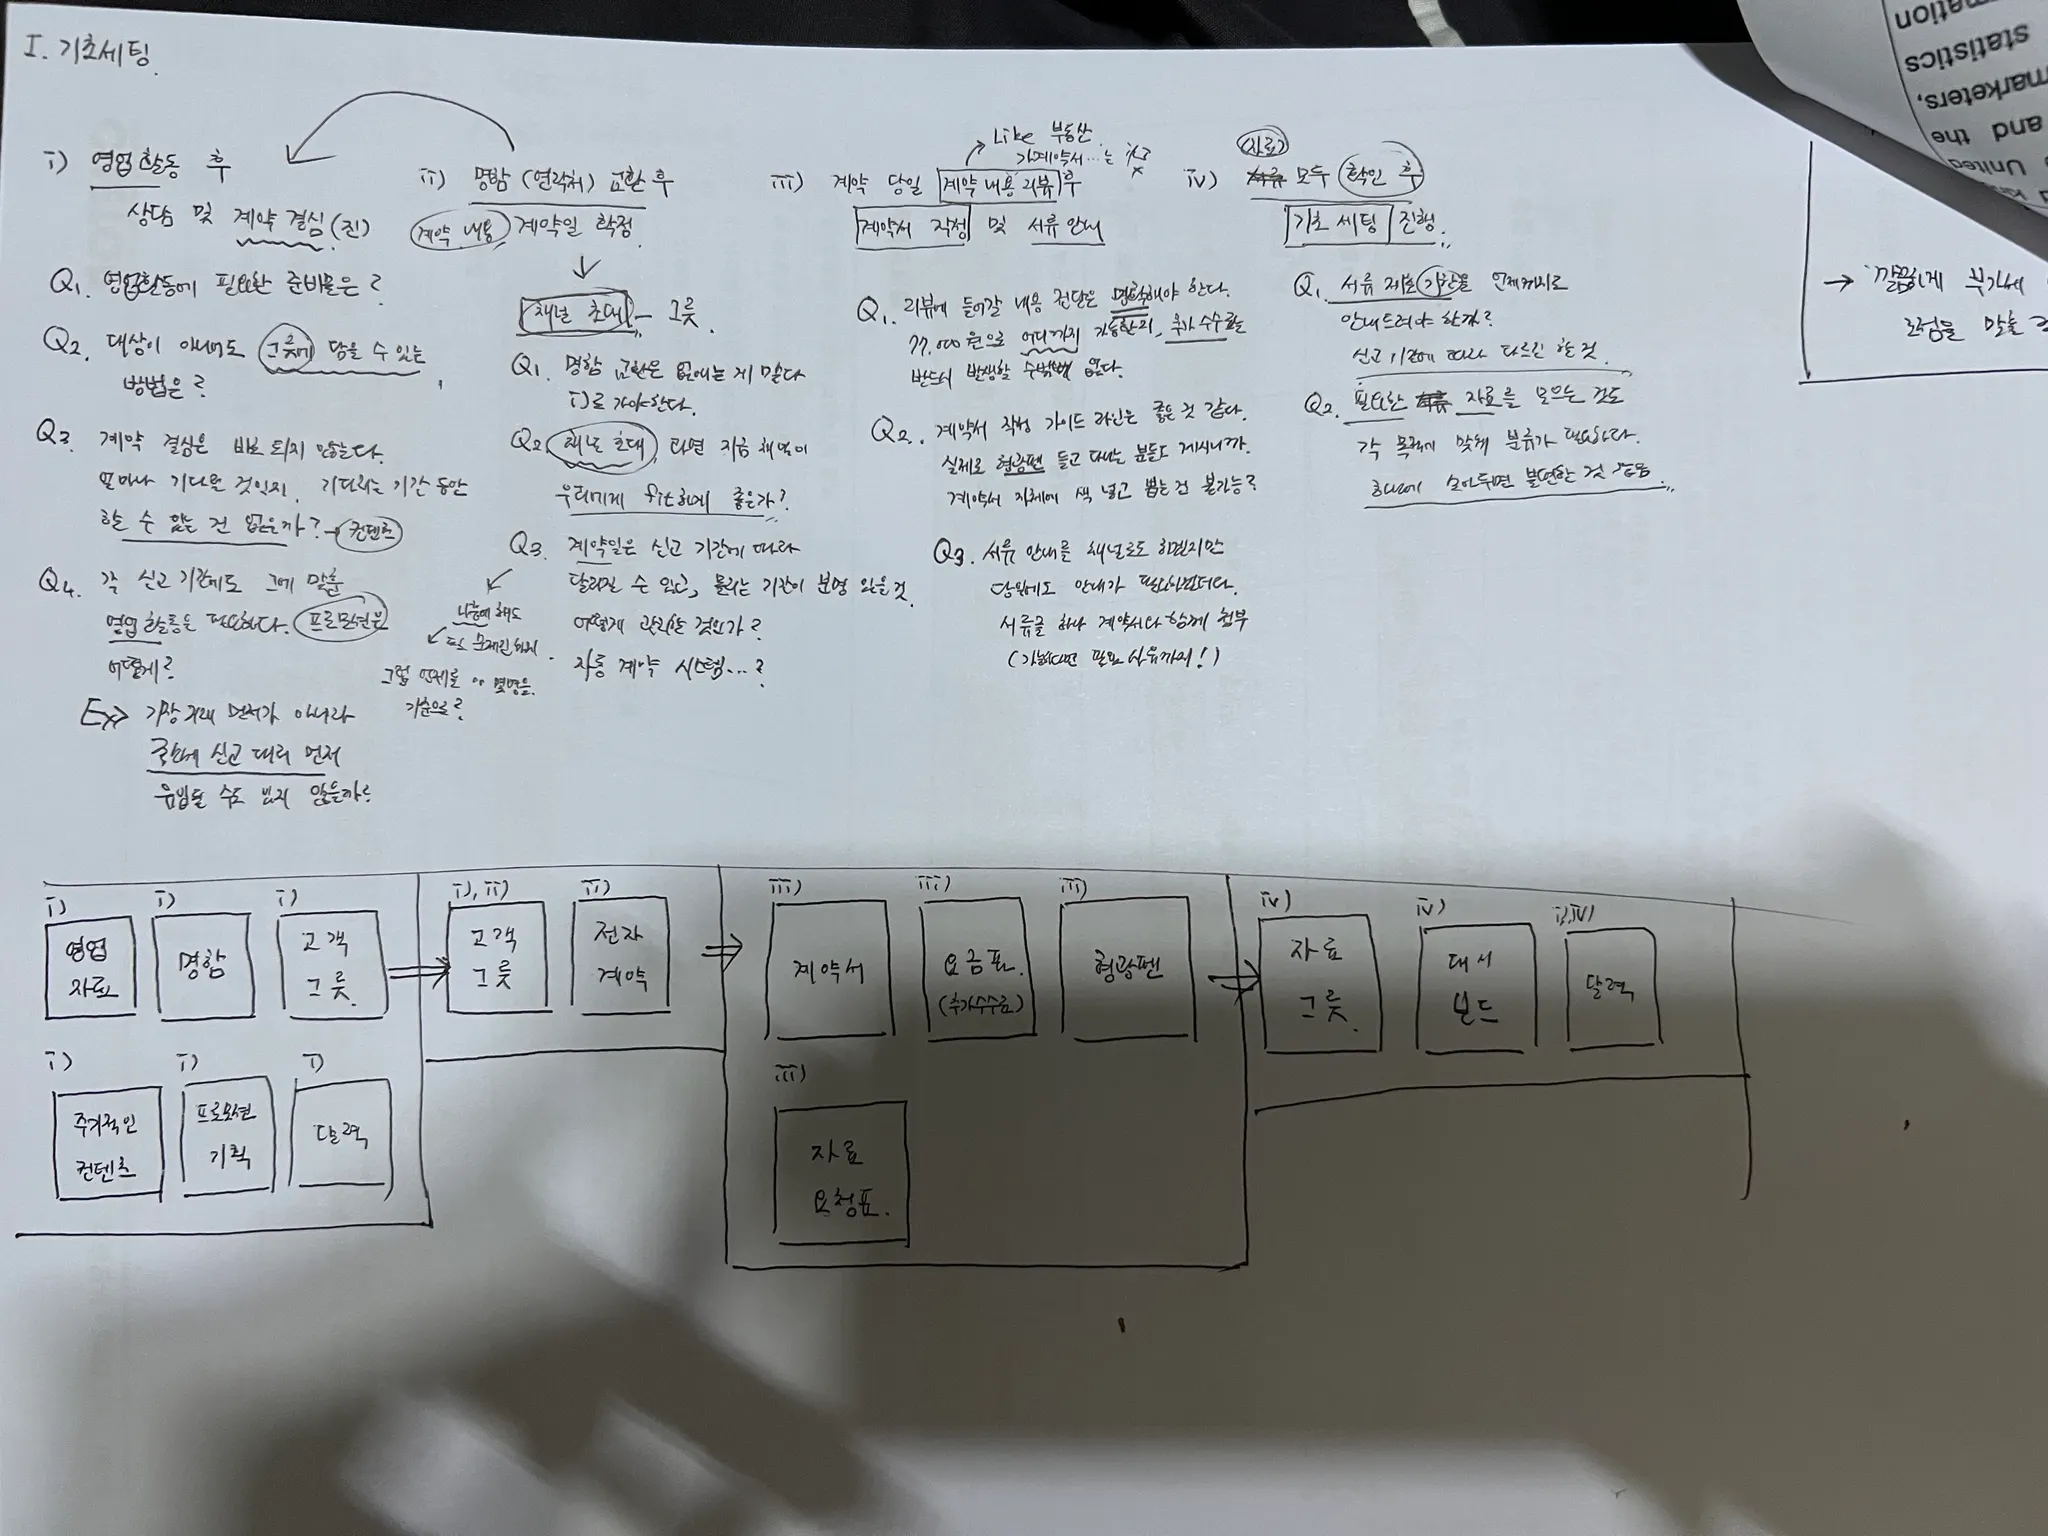 I. 기초세팅.
i) 영업활동 후
상담 및 계약 결심(진)
Q1. 영업활동에 필요한 준비물은?
Q2. 대상이 아니어도 그릇에 담을 수 있는
방법은?
Q3. 계약 결심은 바로 되지 않는다.
얼마나 기다릴 것인지, 기다리는 기간 동안
할 수 있는 건 없을까? → 컨텐츠
Q4. 각 신고기간에도 그에 맞춘
영업활동은 필요하다. 프로모션은
어떻게?
Ex> 기장거래 먼저가 아니라
신고 대리 먼저
유입될 수도 있지 않을까?
ii) 명함(연락처) 교환 후
계약 내용 계약일 확정.
채널 초대 - 그릇.
Q1. 명함 교환은 없애는 게 맞다
i)로 가야한다.
Q2. 채널 초대 라면 지금 채널이
우리에게 fit하게 좋은가?
Q3. 계약일은 신고 기간에 따라
달라질 수 있고, 몰리는 기간이 분명 있을 것.
어떻게 관리할 것인가?
자동 계약 시스템...?
나중에 해도
그럼 언제를 or 몇명을
기준으로?
iii) 계약 당일 계약 내용 리뷰 후
계약서 작성 및 서류 안내
Like 부동산
가계약서...는
x
Q1. 리뷰에 들어갈 내용 전달은 명확해야 한다.
77,000원으로 어디까지 가능한지, 추가 수수료는
반드시 발생할 수밖에 없다.
Q2. 계약서 작성 가이드 라인은 좋은 것 같다.
실제로 형광펜 들고 다니는 분들도 계시니까.
계약서 자체에 색 넣고 뽑는 건 불가능?
Q3. 서류 안내를 채널로도 하겠지만
당일에도 안내가 필요하겠더라.
서류를 하나 계약서와 함께 첨부
(가능하다면 필요 사유까지!)
iv) 자료 모두 확인 후
기초 세팅 진행.
Q1. 서류 제출 기한을 언제까지로
안내드려야 할까?
신고 기간에 따라 다르긴 할 것.
Q2. 필요한 자료를 모으는 것도
각 목적에 맞게 분류가 필요하다.
하나에 모아두면 불편한 것
→ 깔끔하게 부가세
초점을 맞출
i) 영업 자료
i) 명함
i) 고객 그릇.
i), ii) 고객 그릇
ii) 전자 계약
iii) 계약서
iii) 요금표. (추가수수료)
iii) 형광펜
iv) 자료 그릇.
iv) 대시 보드
i), iv) 달력
i) 주기적인 컨텐츠
i) 프로모션 기획
i) 달력
iii) 자료 요청표.
mation
statistics
marketers,
and the
United